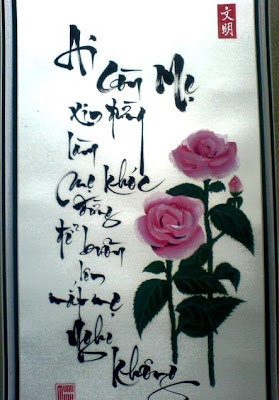 Ai
Còn Mẹ
xin đừng
làm
mẹ khóc
đừng
để buồn
lên
mắt mẹ
nghe
không
文明